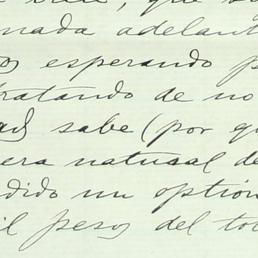 que
nada adelant
os esperando p
tratando de no
ad sabe (por qu
era natural de
dido un optión
il pesos del tot